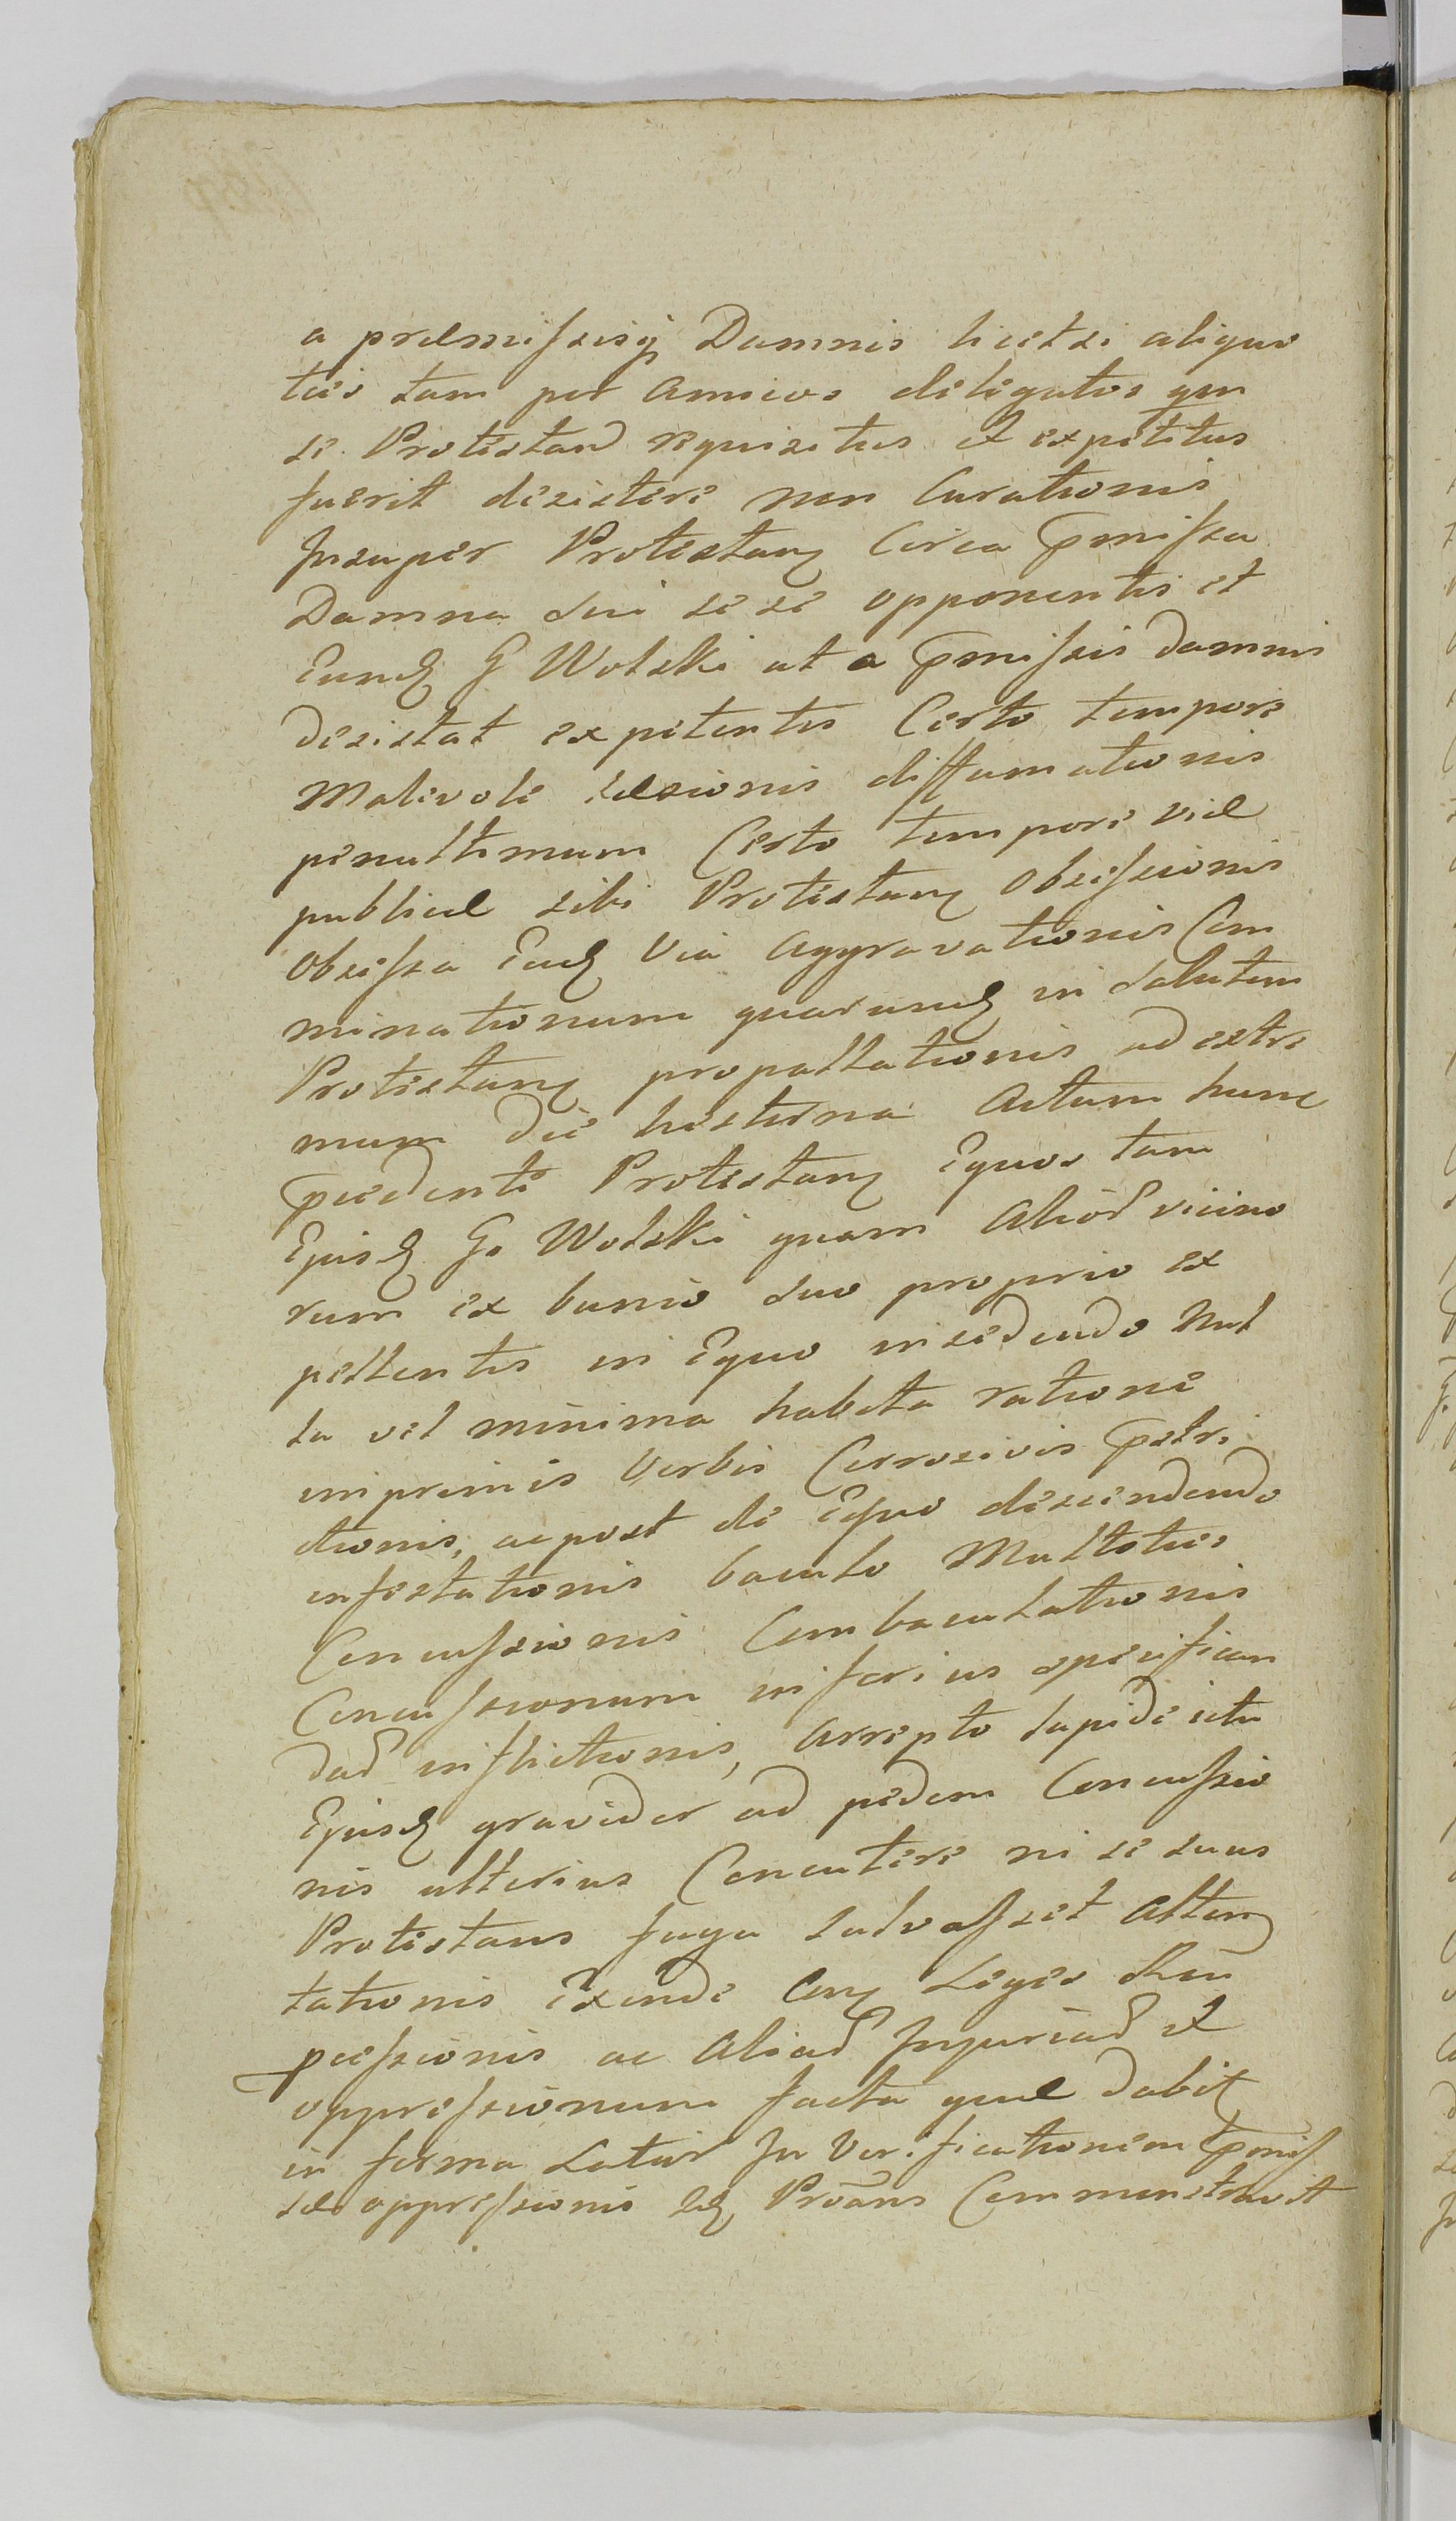 a præmissisq Damnis licet si aliquo
ties tam per Amicos deligatos qm
se Protestand requisitus et expetitus
fuerit desistere non Curationis
Insuper Protestanq Circa pmissa
Damna sui se se opponentis et
Eundq G Wolski ut a pmissis damnis
desistat expetentis Certo tempore
Malevole læsionis diffamationis
penultimum Certo tempore viæ
publicæ sibi Protestanq Obsessionis
Obsessa Eadq via Aggravationis Com
minationum quarundq in salutem
Protestanq propallationis ad extre
mum die hesterna Actum hunc
pcedenti Protestanq Equos tam
Ejusdq Gs Wolski quam Aliõr vicino
rum ex bonis suo proprio ex
pellentis in Equo insedendo Nul
la vel minima habita ratione
imprimis Verbis Corrosivis pstri
ctionis, ac post de Equo descendendo
infestationis baculo Multoties
Concussionis Combaculationis
Concussionum inferius specifican
dar inflictionis, Arrepto lapide ictu
Ejusdq graviter ad pedem Concussio
nis ulterius Concutere ni se suus
Protestans fuga salvasset Atten
tationis Exinde Conq Leges
pcessionis ac Aliar Injuriar et
oppressionum facta quæ dabit
in forma Latior In Verificationem pmis
sæ oppressionis Idq Proãns Commonstravit